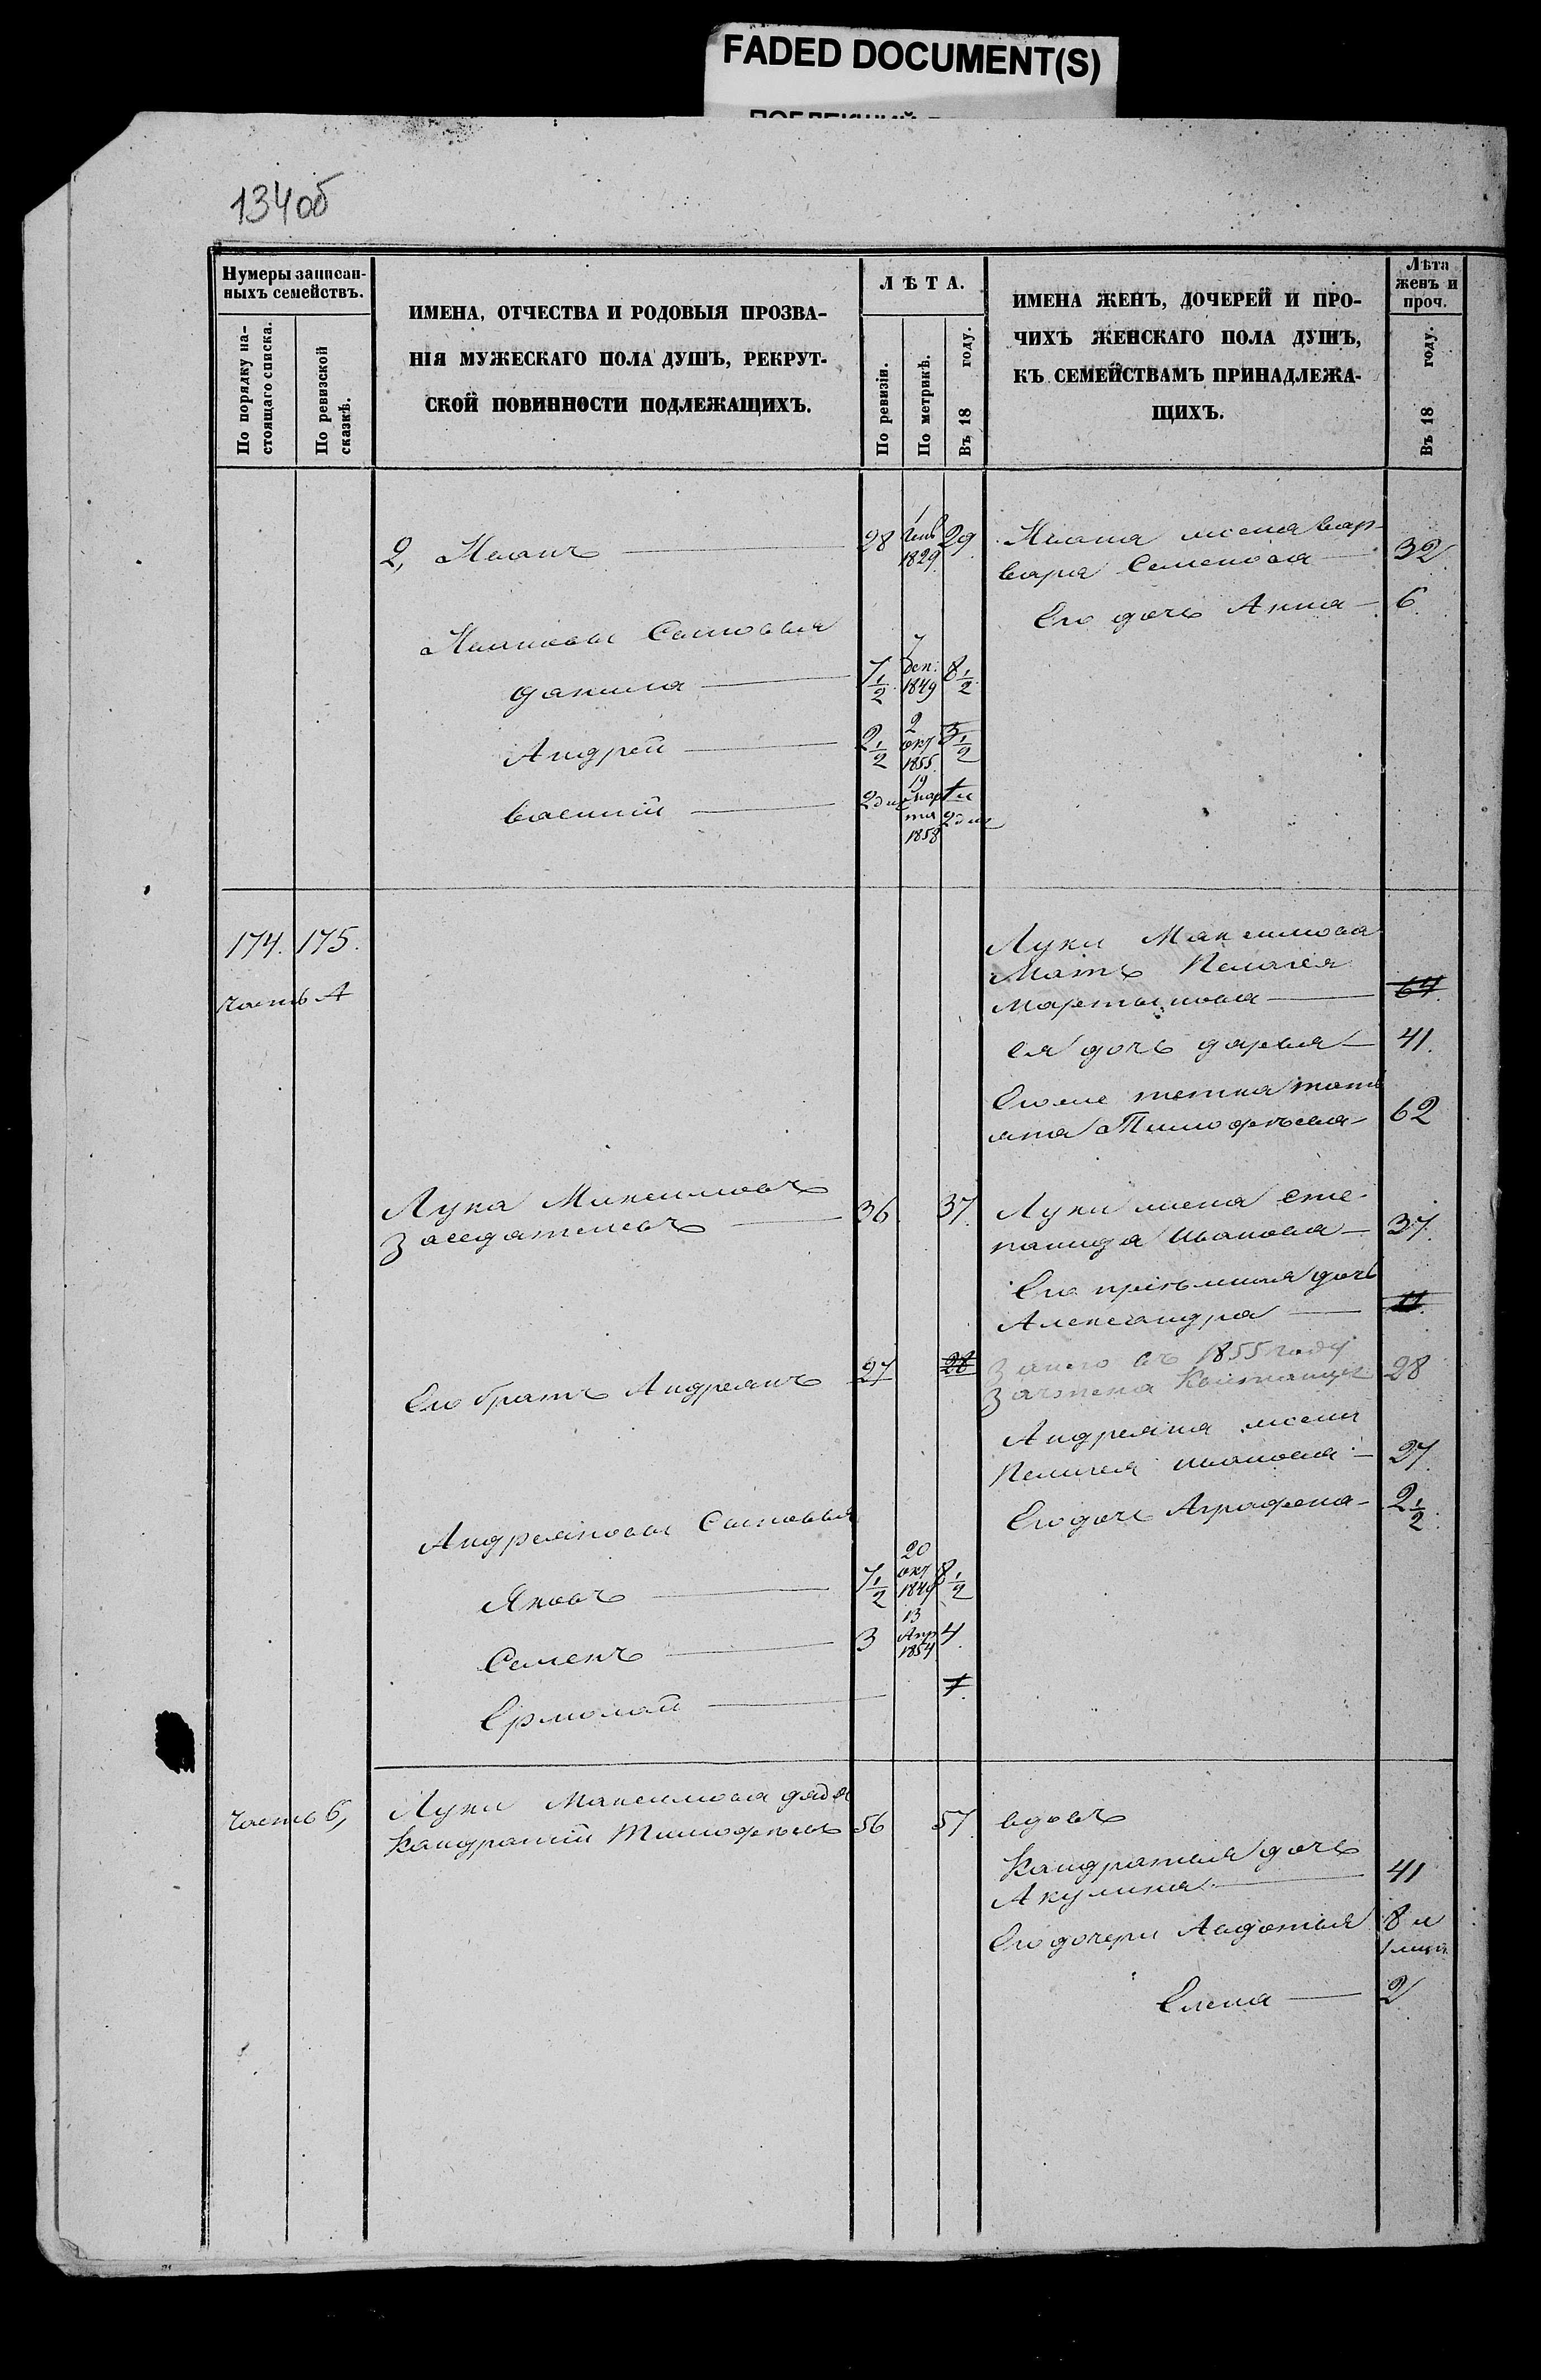 FADED DOCUMENT(S)
134 об
Нумеры записан-
ныхъ семействъ.
По порядку на-
стоящаго списка.
По ревизской
сказкѣ.
ИМЕНА, ОТЧЕСТВА И РОДОВЫЯ ПРОЗВА-
НІЯ МУЖЕСКАГО ПОЛА ДУШЪ, РЕКРУТ-
СКОЙ ПОВИННОСТИ ПОДЛЕЖАЩИХЪ.
ЛѢТА.
По ревизіи.
По метрикѣ.
Въ 18 году.
ИМЕНА ЖЕНЪ, ДОЧЕРЕЙ И ПРО-
ЧИХЪ ЖЕНСКАГО ПОЛА ДУШЪ,
КЪ СЕМЕЙСТВАМЪ ПРИНАДЛЕЖА-
ЩИХЪ.
Лѣта
женъ и
проч.
Въ 18 году.
2, 28 1829 29
жена Вар-
вара Семенова 32
Его дочь Анна 6
Сыновья
Данила 7 1/2 7 Дек. 1849 8 1/2
Андрей 2 1/2 2 окт 1855 3 1/2
Василій 2 дне 19 марта 1858 1 и 2 дне
174. 175.
часть А
Луки Максимова
Мать Пелагея
Мартынова 64
ея дочь Дарья 41.
Его же тетка Тать
яна Тимофѣева 62
Лука Максимовъ
Заседателевъ 36 37
Луки жена Сте-
панида Иванова 37.
Его пріемная дочь
Александра 11
Его братъ Андреянъ 27 28
За него въ 1855 году
Зачтена Квитанція 28
Андреяна жена
Пелагея Иванова 27
Его дочь Аграфена 2 1/2
Андреяновы Сыновья
Яковъ 7 1/2 20 окт 1849 8 1/2
Семенъ 3 13 Апр 1854 4
Ермолай 7.
часть Б,
Луки Максимова дядя
Кандратій Тимофѣевъ 56 57
вдовъ
Кандратья дочь
Акулина 41
Его дочери Авдотья 8 и
Елена 2